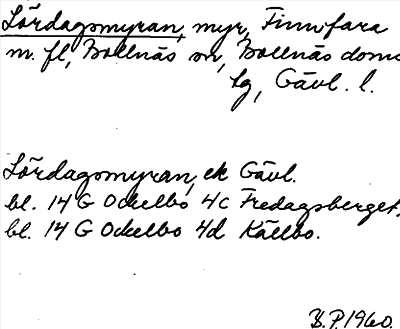 Lördagsmyran, myr, Finnfara
m. fl, Bollnäs sn, Bollnäs doms
lg, Gävl. l.
Lördagsmyran, ek Gävl.
bl. 14 G Ockelbo 4c Fredagsberget,
bl. 14 G Ockelbo 4d Källbo.
B.P. 1960.